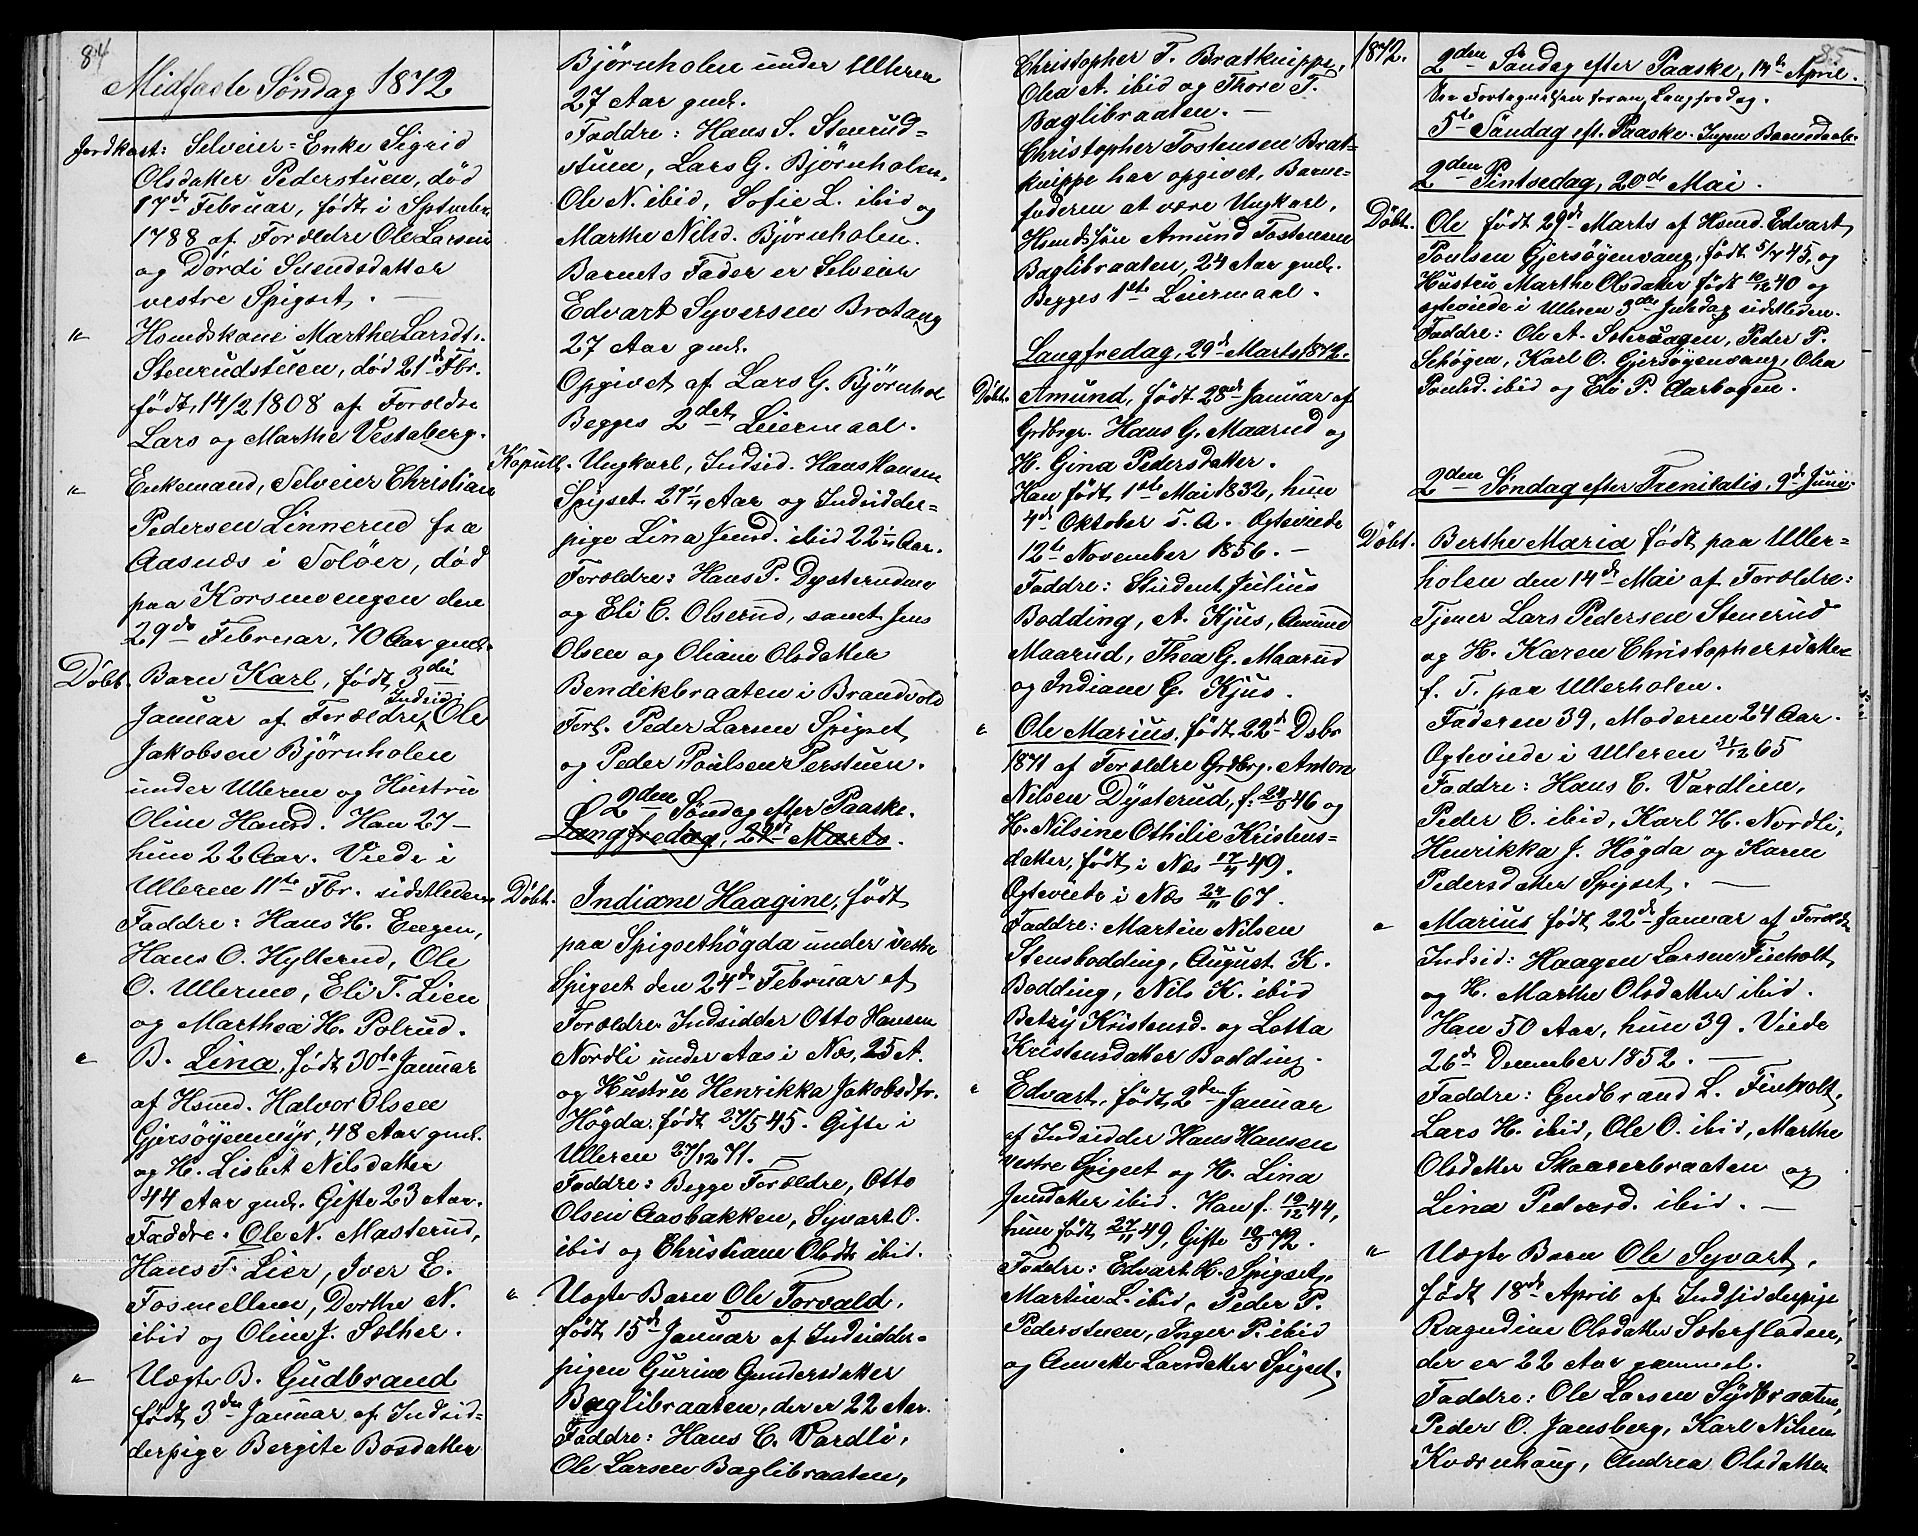 84
Midfaste Søndag 1872
Jordkast: Selveier-Enke Sigrid
Olsdatter Pederstuen, død
17de Februar, født i Sptmbr.
1788 af Forældre Ole Larsen
og Dørdi Svendsdatter
vestre Spigset. —
" Hsmdskone Marthe Larsdt.
Stenrudstuen, død 21de Fbr.
født 14/2 1808 af Forældre
Lars og Marthe Vestaberg.
" Enkemand, Selveier Christian
Pedersen Linnerud fra
Aasnæs i Soløer, død
paa Korsmoengen den
29de Februar, 70 Aar gml.
Døbt. Barn Karl, født 3die
Januar af Forældre Indsid. Ole
Jakobsen Bjørnholen
under Ulleren og Hustru
Oline Hansd. Han 27 —
hun 22 Aar. Viede i
Ulleren 11te Fbr. sidstleden
Faddre: Hans H. Engen,
Hans O. Hylterud, Ole
O. Ullermo, Eli T. Lien
og Marthea H. Polrud.
" B. Lina, født 30te Januar
af Hsmd. Halvor Olsen
Gjersøyenmyr, 48 Aar gml.
og H. Lisbet Nilsdatter
44 Aar gml. Gifte 23 Aar.
Faddre. Ole N. Masterud,
Hans T. Lier, Iver E.
Fosmellem, Dorthe N.
ibid og Oline J. Sæther.
" Uægte B. Gudbrand
født 3den Januar af Indsid-
derpige Bergite Bosdatter
Bjørnholen under Ulleren
27 Aar gml.
Faddre: Hans S. Stenrud-
stuen, Lars G. Bjørnholen,
Ole N. ibid, Sofie L. ibid og
Marthe Nilsd. Bjørnholen.
Barnets Fader er Selveier
Edvart Syversen Brotang
27 Aar gml.
Opgivet af Lars G. Bjørnhol
Begges 2det Leiermaal.
Kopull. Ungkarl, Indsid. Hans Hansen
Spigset 27 1/4 Aar og Indsidder-
pige Lina Jensd. ibid 22 Aar.
Forældre: Hans P. Dysterudmo
og Eli C. Olserud, samt Jens
Olsen og Oliane Olsdatter
Bendikbraaten i Brandvold
Forl. Peder Larsen Spigset
og Peder Poulsen Perstuen.
2den Søndag efter Paaske.
Langfredag, 29de Marts.
Døbt. Indiane Haagine, født
paa Spigsethögda under vestre
Spigset den 24de Februar af
Forældre Indsidder Otto Hansen
Nordli under Aas i Næs, 25 A.
og Hustru Henrikka Jakobsdtr.
Högda født 27/5 45. Gifte i
Ulleren 27/12 71. —
Faddre: Begge Forældre, Otto
Olsen Aasbakken, Syvart O.
ibid og Christiane Olsdt ibid.
" Uægte Barn Ole Torvald,
født 15de Januar af Indsidder-
pigen Gurine Gundersdatter
Baglibraaten, der er 22 Aar.
Faddre: Hans C. Vardli,
Ole Larsen Baglibraaten,
Christopher T. Bratknippe,
Olea A. ibid og Thore T.
Baglibraaten. —
Christopher Tostensen Brat-
knippe har opgivet, Barne-
faderen at være Ungkarl,
Hsmdssön Amund Tostensen
Baglibraaten, 24 Aar gml.
Begges 1ste Leiermaal.
Langfredag, 29de Marts 1872.
Døbt. Amund, født 28de Januar af
Grdbrgr. Hans G. Maarud og
H. Gina Pedersdatter.
Han født 1ste Mai 1832, hun
4de Oktober s. A. Ægteviede
12te November 1856. —
Faddre: Student Julius
Bodding, A. Kjus, Amund
Maarud, Thea G. Maarud
og Indiane G. Kjus.
" Ole Marius, født 22de Dsbr
1871 af Forældre Grdbrg. Anton
Nilsen Dysterud, f. 46 og
H. Nilsine Othilie Kristens-
datter, født i Næs 17/4 49.
Ægteviede i Næs 24/11 67.
Faddre: Martin Nilsen
Stensbodding, August K.
Bodding, Nils K. ibid
Betzy Kristensd. og Lotta
Kristensdatter Bodding.
" Edvart, født 2den Januar
af Indsidder Hans Hansen
vestre Spigset og H. Lina
Jensdatter ibid. Han f. 10/12 44,
hun født 27/11 49, Gifte 10/3 72.
Faddre: Edvart H. Spigset,
Martin L. ibid, Peder P.
Pederstuen, Inger P. ibid
og Annette Larsdatter Spigset.
1872.
85
2den Søndag efter Paaske, 14de April.
Se Fortegnelsen foran, Langfredag.
5te Søndag eft. Paaske. Ingen Barnedaab.
2den Pintsedag, 20de Mai.
Døbt. Ole født 29de Marts af Hsmd. Edvart
Poulsen Gjersøyenvang, født 5/7 45, og
Hustru Marthe Olsdatter født 10/12 40 og
ægteviede i Ulleren 3die Juledag sidstleden.
Faddre: Ole A. Sæteraagen, Peder P.
Schøgen, Karl O. Gjersøyenvang, Olea
Poulsd. ibid og Eli P. Aarbogen.
2den Søndag efter Trenitatis, 9de Juni.
Døbt. Berthe Maria født paa Uller-
holen den 14de Mai af Forældre:
Tjener Lars Pedersen Stenerud
og H. Karen Christophersdatter
f. T. paa Ullerholen.
Faderen 39, Moderen 24 Aar.
Ægteviede i Ulleren 31/12 65
Faddre: Hans C. Vardlien,
Peder C. ibid, Karl H. Nordli,
Henrikka J. Högda og Karen
Pedersdatter Spigset. —
" Marius født 22de Januar af Foreldr.
Indsid: Haagen Larsen Finholt
og H. Marthe Olsdatter ibid.
Han 50 Aar, hun 39. Viede
26de December 1852. —
Faddre: Gudbrand L. Finholt,
Lars H. ibid, Ole O. ibid, Marthe
Olsdatter Skaarerbraaten og
Lina Pedersd. ibid. —
" Uægte Barn Ole Syvart,
født 18de April af Indsidderpige
Ragndine Olsdatter Sæterfloden,
der er 22 Aar gammel.
Faddre: Ole Larsen Sydbraaten,
Peder O. Jansberg, Karl Nilsen
Kværnhaug, Andrea Olsdatter